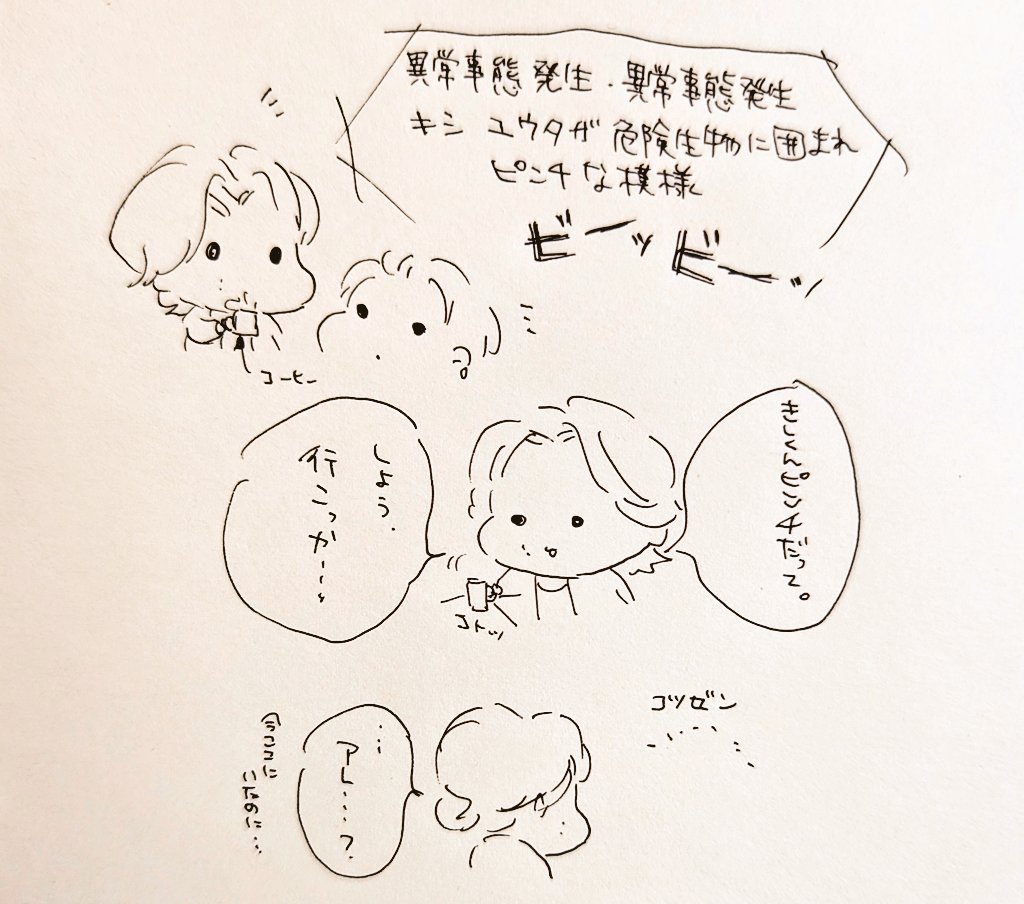 異常事態発生・異常事態発生
キシ ユウタが危険生物に囲まれ
ピンチな模様
ビーッビーッ
コーヒー
きしくんピンチだって。
しょう。
行こっか〜〜
コトッ
コツゼン
……
アレ……?